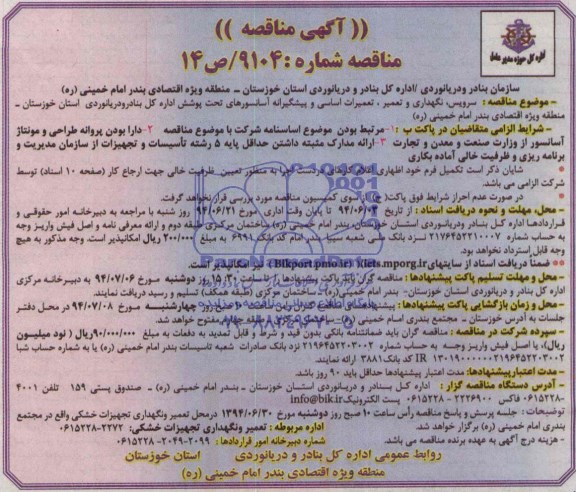 (( آگهی مناقصه ))
مناقصه شماره :۹۱۰۴/ص۱۴
اداره کل حوزه مدیر عامل
سازمان بنادر ودریانوردی /اداره کل بنادر و دریانوردی استان خوزستان ــ منطقه ویژه اقتصادی بندر امام خمینی (ره)
- موضوع مناقصه : سرویس، نگهداری و تعمیر ، تعمیرات اساسی و پیشگیرانه آسانسورهای تحت پوشش اداره کل بنادرودریانوردی استان خوزستان ــ
منطقه ویژه اقتصادی بندر امام خمینی (ره)
- شرایط الزامی متقاضیان در پاکت ب : ۱- مرتبط بودن موضوع اساسنامه شرکت با موضوع مناقصه ۲-دارا بودن پروانه طراحی و مونتاژ
آسانسور از وزارت صنعت و معدن و تجارت ۳-ارائه مدارک مثبته داشتن حداقل پایه ۵ رشته تأسیسات و تجهیزات از سازمان مدیریت و
برنامه ریزی و ظرفیت خالی آماده بکاری
شایان ذکر است تکمیل فرم خود اظهاری اعلام کارهای دردست اجرا به منظور تعیین ظرفیت خالی جهت ارجاع کار (صفحه ۱۰ اسناد) توسط
شرکت الزامی می باشد.
در صورت عدم احراز شرایط فوق پاکت( ج) از سوی کمیسیون مناقصه مورد بررسی قرار نخواهد گرفت.
- محل، مهلت و نحوه دریافت اسناد : از تاریخ ۹۴/۰۶/۰۴ تا پایان وقت اداری مورخ ۹۴/۰۶/۲۱ روز شنبه با مراجعه به دبیرخانه امور حقوقی و
قراردادها اداره کل بنادر و دریانوردی استان خوزستان، بندر امام خمینی (ره) ساختمان مرکزی طبقه دوم و ارائه معرفی نامه و اصل فیش واریز وجه
به حساب شماره ۲۱۷۶۴۵۲۲۱۰۰۷ نزد بانک ملی شعبه سیبا بندر امام کد بانک ۶۹۹۱ به مبلغ ۲۰۰/۰۰۰ ریال امکانپذیر است. وجه مذکور به هیچ
وجه قابل استرداد نخواهد بود.
ضمناً دریافت اسناد از سایتهای iets.mporg.ir و Bikport.pmo.ir نیز امکانپذیر است.
- محل و مهلت تسلیم پاکت پیشنهادها : مناقصه گران باید پاکت پیشنهادها را تا ساعت ۱۵:۳۰ روز دوشنبه مورخ ۹۴/۰۷/۰۶ به دبیرخانه مرکزی
اداره کل بنادر و دریانوردی استان خوزستان- بندر امام خمینی(ره) ــ ساختمان مرکزی (طبقه همکف) تسلیم و رسید دریافت نمایند.
- محل و زمان بازگشایی پاکت پیشنهادها : پیشنهادهای مناقصه گران رأس ساعت صبح روز چهارشنبه مورخ ۹۴/۰۷/۰۸ در محل دفتر
جلسات به آدرس خوزستان ــ مجتمع بندری امام خمینی (ره) ــ ساختمان مرکزی ــ طبقه چهارم مفتوح خواهد شد.
- سپرده شرکت در مناقصه : مناقصه گران باید ضمانتنامه بانکی بدون قید و شرط و قابل تمدید به دفعات به مبلغ ۹۰/۰۰۰/۰۰۰ریال ( نود میلیون
ریال)، یا اصل فیش واریز وجه به حساب شماره ۲۱۹۶۴۵۲۲۰۳۰۰۲ نزد بانک صادرات شعبه تاسیسات بندر امام خمینی (ره) یا به شماره حساب شبا
IR کد بانک۳۸۸۱ ارائه نمایند.
- مدت اعتبارپیشنهادها: مدت اعتبار پیشنهادها حداقل باید ۹۰ روز باشد.
- آدرس دستگاه مناقصه گزار : اداره کل بنادر و دریانوردی استان خوزستان ــ بندر امام خمینی (ره) ــ صندوق پستی ۱۵۹ تلفن ۴۰۰۱
۰۶۱۵۲۲۸- فاکس ۲۲۲۶۹۰۰ - ۰۶۱۵۲۲۸ پست الکترونیک info@bik.ir
توضیحات : جلسه پرسش و پاسخ مناقصه رأس ساعت ۱۰ صبح روز دوشنبه مورخ ۱۳۹۴/۰۶/۳۰ درمحل تعمیر ونگهداری تجهیزات خشکی واقع در مجتمع
بندری امام خمینی (ره) برگزار خواهد شد.
اداره مربوطه : تعمیر ونگهداری تجهیزات خشکی: ۲۲۷۲-۰۶۱۵۲۲۸
- هزینه درج آگهی به عهده برنده مناقصه می باشد.
شماره دبیرخانه امور قراردادها : ۲۰۹۹-۲۰۴۹-۰۶۱۵۲۲۸
روابط عمومی اداره کل بنادر و دریانوردی استان خوزستان
منطقه ویژه اقتصادی بندر امام خمینی (ره)